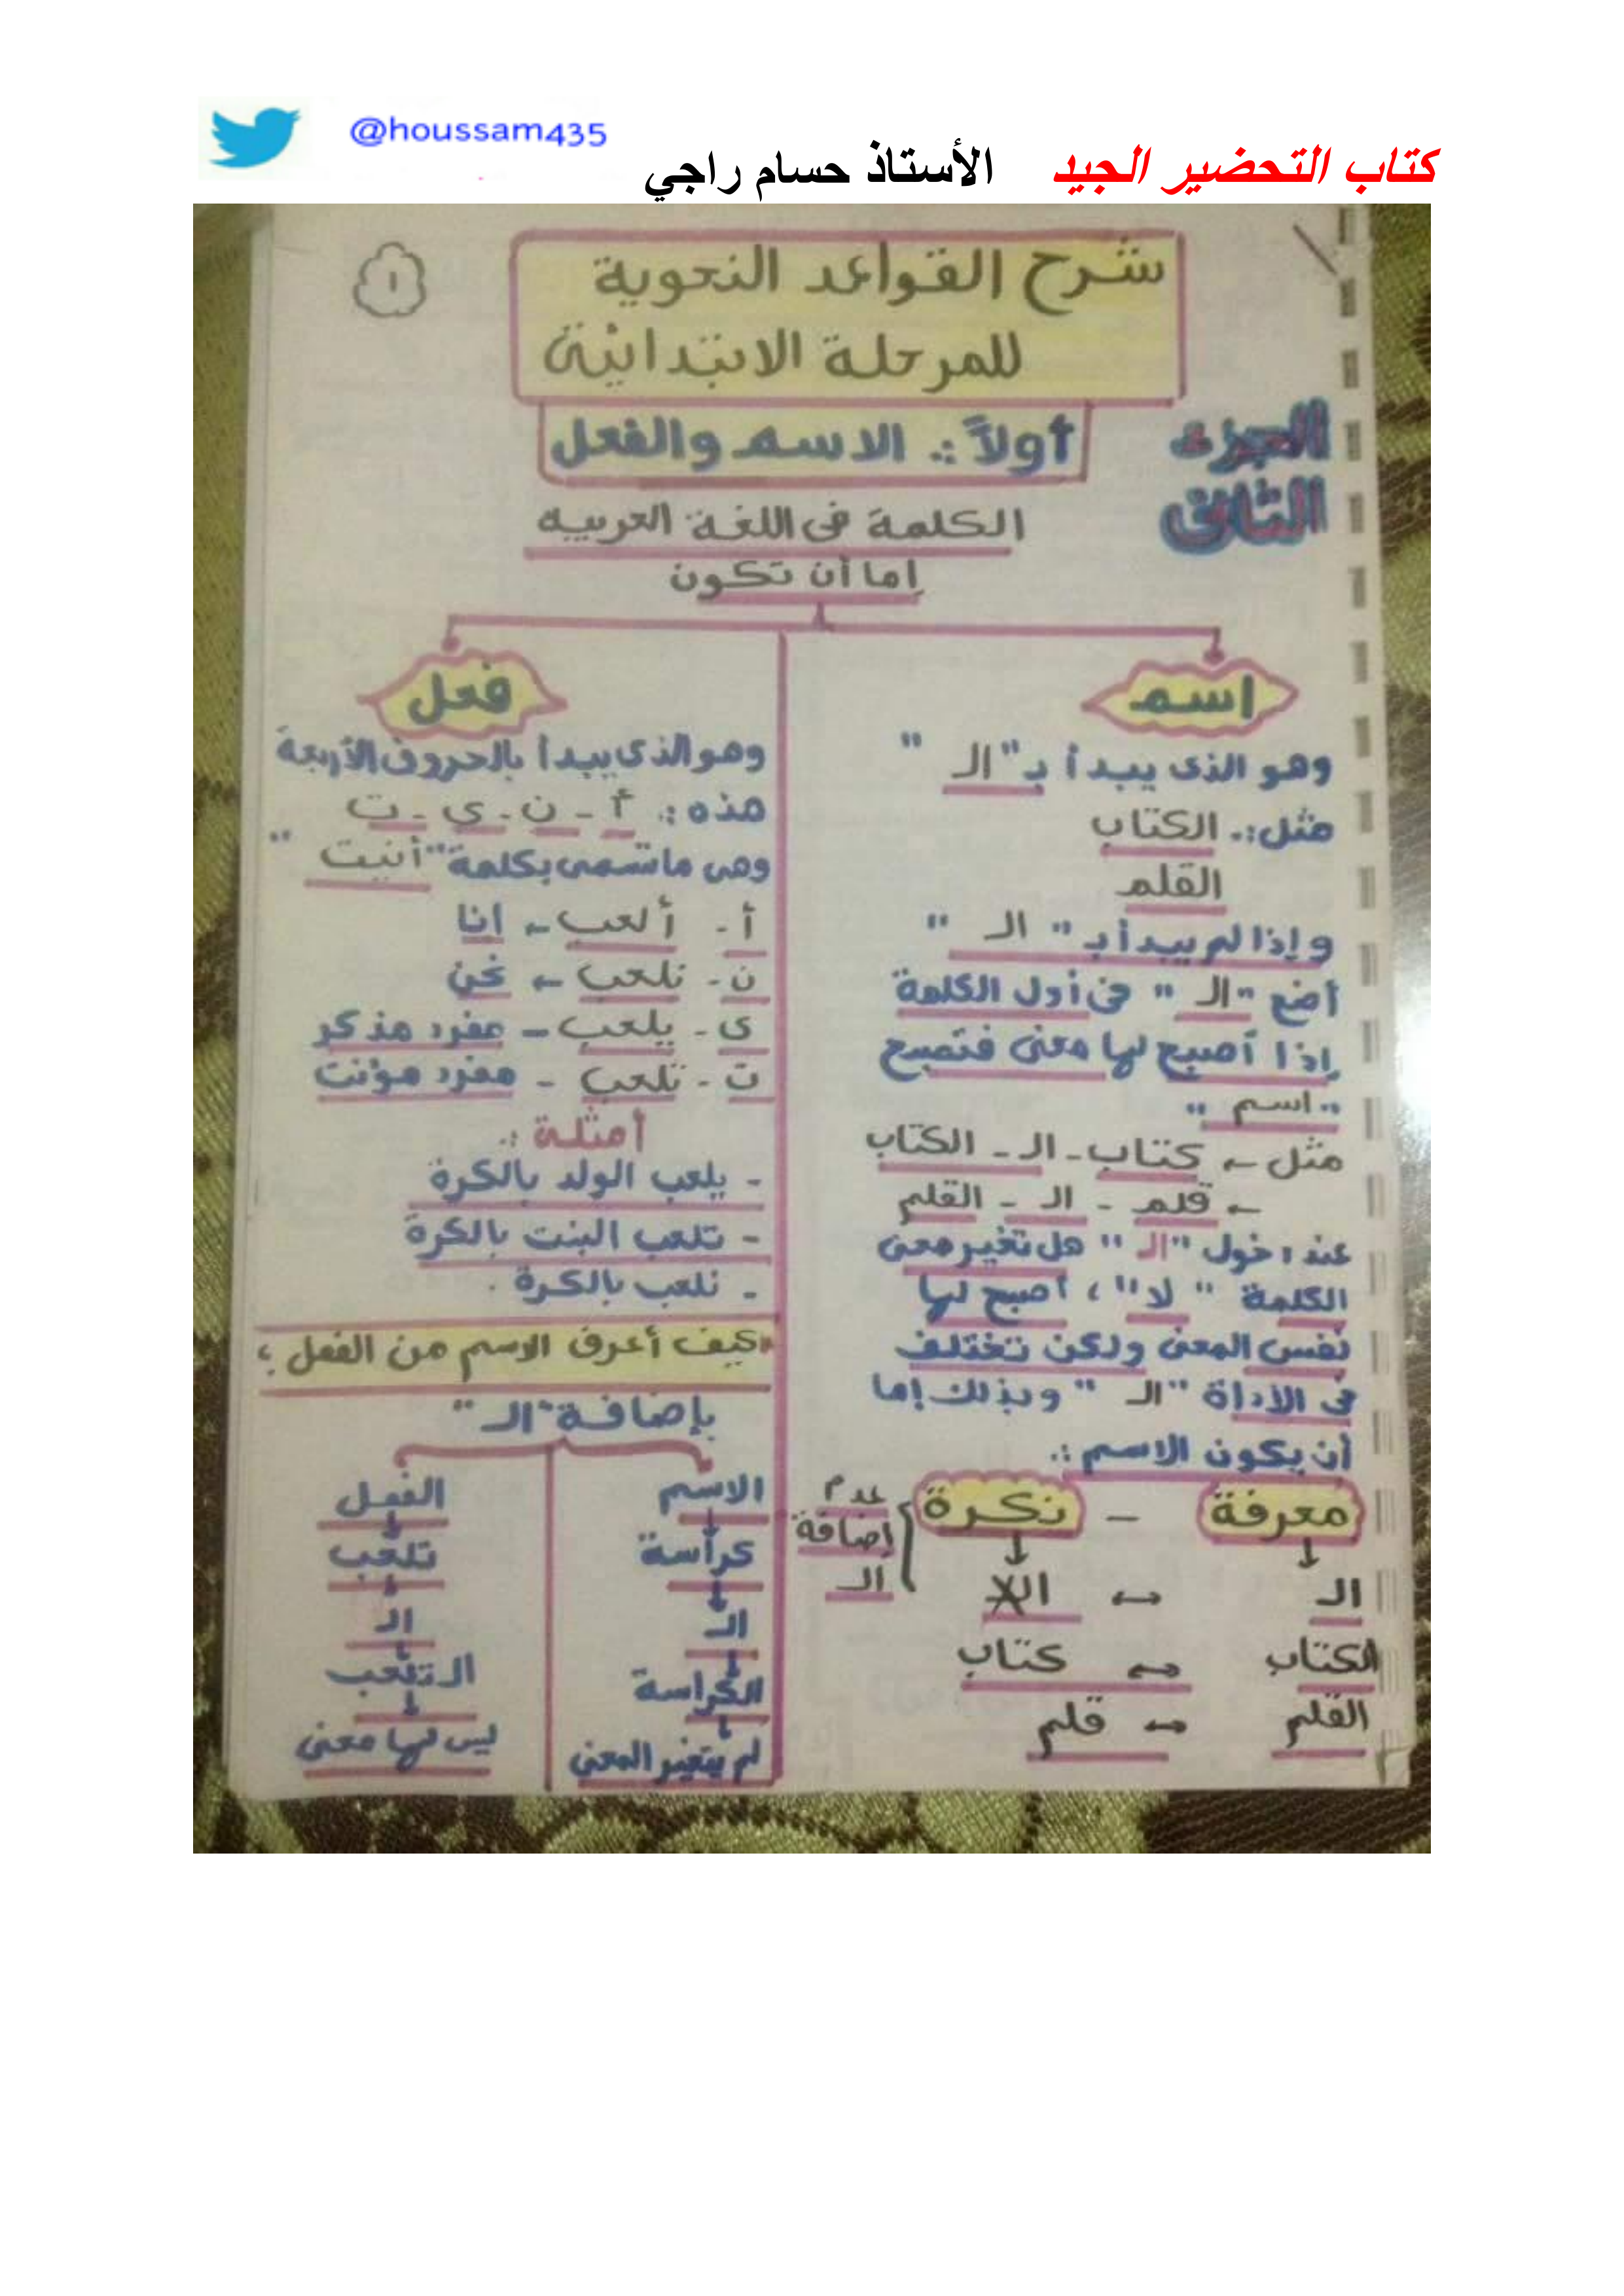 @houssam435
كتاب التحضير الجيد الأستاذ حسام راجي
١
شرح القواعد النحوية
للمرحلة الابتدائية
الجزء
الثانى
أولاً :. الاسم والفعل
الكلمة فى اللغة العربيه
إما أن تكون
اسم
وهو الذى يبدأ بـ "الـ"
مثل :. الكتاب
القلم
وإذا لم يبدأ بـ "الـ"
أضع "الـ" فى أول الكلمة
إذا أصبح لها معنى فتصبح
"اسم"
مثل ← كتاب - الـ - الكتاب
← قلم - الـ - القلم
عند دخول "الـ" هل تغير معنى
الكلمة "لا" ، أصبح لها
نفس المعنى ولكن تختلف
فى الأداة "الـ" وبذلك إما
أن يكون الاسم :.
معرفة - نكرة
الـ ↔ الـ
عدم
إضافة
الـ
الكتاب ↔ كتاب
القلم ↔ قلم
فعل
وهو الذى يبدأ بالحروف الأربعة
هذه :. أ - ن - ي - ت
وهى ما تسمى بكلمة "أنيت"
أ - ألعب ← أنا
ن - نلعب ← نحن
ى - يلعب - مفرد مذكر
ت - تلعب - مفرد مؤنث
أمثلة :.
- يلعب الولد بالكرة
- تلعب البنت بالكرة
- نلعب بالكرة .
كيف أعرف الاسم من الفعل ؟
بإضافة "الـ"
الاسم
كراسة
الـ
الكراسة
لم يتغير المعنى
الفعل
تلعب
الـ
الـ تلعب
ليس لها معنى